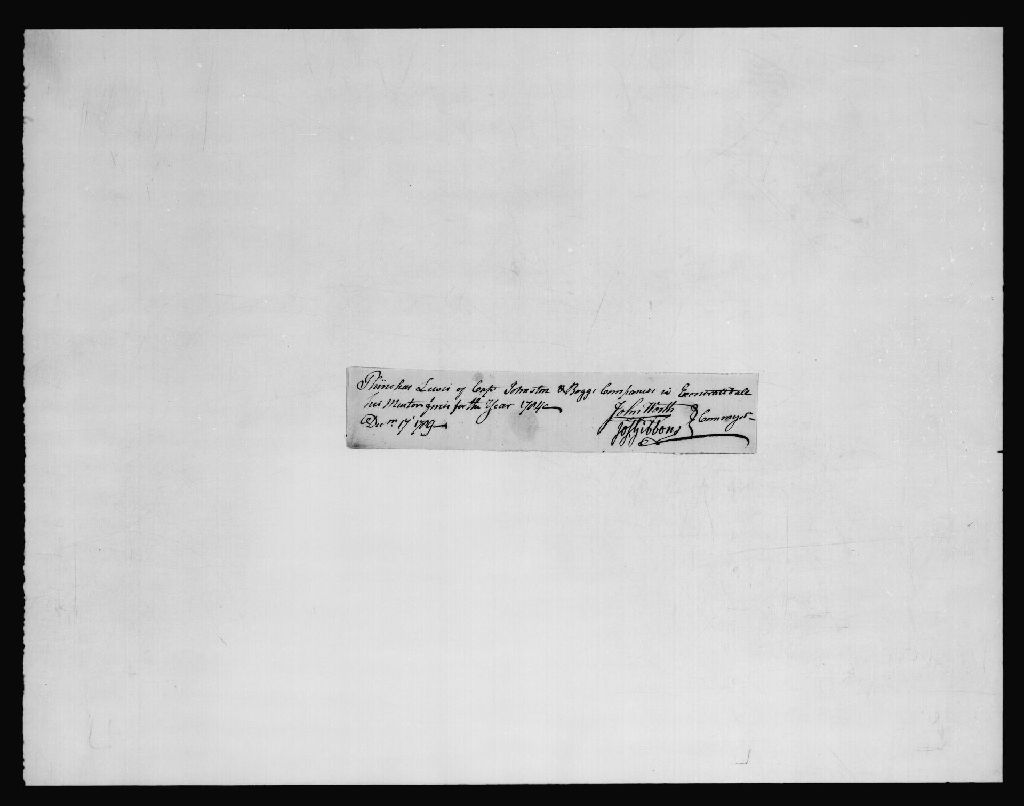 Phinehas Lewis of Capt Johnston & Boggs Companies is
his Muster fines for the Year 1784
Decr 17 1789
John Worth
Jos Gibbons